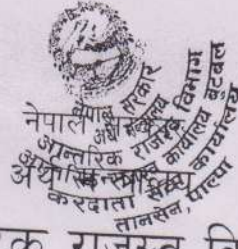 नेपाल सरकार
अर्थ मन्त्रालय
आन्तरिक राजस्व विभाग
आन्तरिक राजस्व कार्यालय बुटवल
करदाता सेवा कार्यालय
तानसेन, पाल्पा
नेपाल
अर्थ
राजस्व